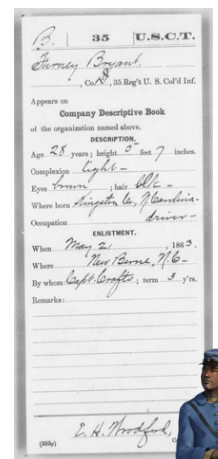 B. | 35 | U.S.C.T.
Furney Bryant
, Co. , 35 Reg't U. S. Col'd Inf.
Appears on
Company Descriptive Book
of the organization named above.
DESCRIPTION.
Age 28 years; height 5 feet 7 inches.
Complexion light –
Eyes brown ; hair blk –
Where born Kingston Co, N Carolina –
Occupation driver –
ENLISTMENT.
When May 21 , 1863.
Where New Berne, N.C –
By whom Capt. Crofts ; term 3 y'rs.
Remarks:
E. H. Woodford
(383g)